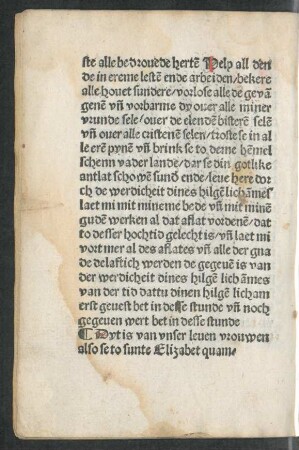 ste alle bedrouede hertē Help all den
de in ereme lestē ende arbeiden/bekere
alle houet sundere/vorlose alle de gevā
genē vñ vorbarme dy ouer alle miner
vrunde sele/ouer de elendē bisterē selē
vñ ouer alle cristenē selen/troste se in al
le erē pynē vñ brink se to deine hēmel
schenn vaderlande/dar se din gotlike
antlat schowē sund ende/leue here dorch
de werdicheit dines hilgē lichāmes
laet mi mit mineme bede vñ mit minē
gudē werken al dat aflat vordenē/dat
to desser hochtid gelecht is/vñ laet mi
vort mer al des aflates vñ alle der gna
de delaftich werden de gegeuē is van
der werdicheit dines hilgē lichāmes
van der tid dattu dinen hilgē licham
erst geuest bet in desse stunde vñ noch
gegeuen wert bet in desse stunde
¶ Dyt is van vnser leuen vrouwen
also se to sunte Elizabet quam.